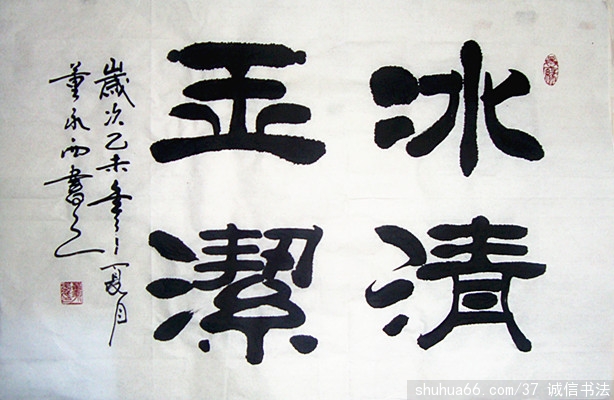 冰清
玉潔
歲次乙未年夏月
董永西書之
shuhua66.com/37 诚信书法